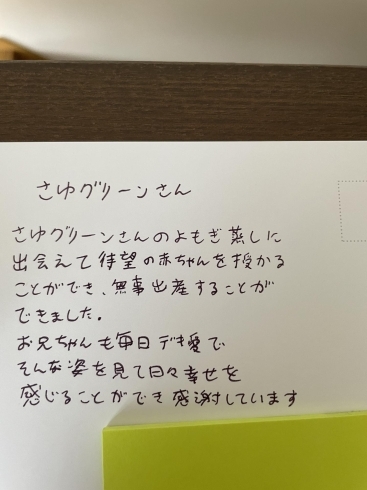 さゆグリーンさん
さゆグリーンさんのよもぎ蒸しに
出会えて待望の赤ちゃんを授かる
ことができ、無事出産することが
できました。
お兄ちゃんも毎日デキ愛で
そんな姿を見て日々幸せを
感じることができ感謝しています